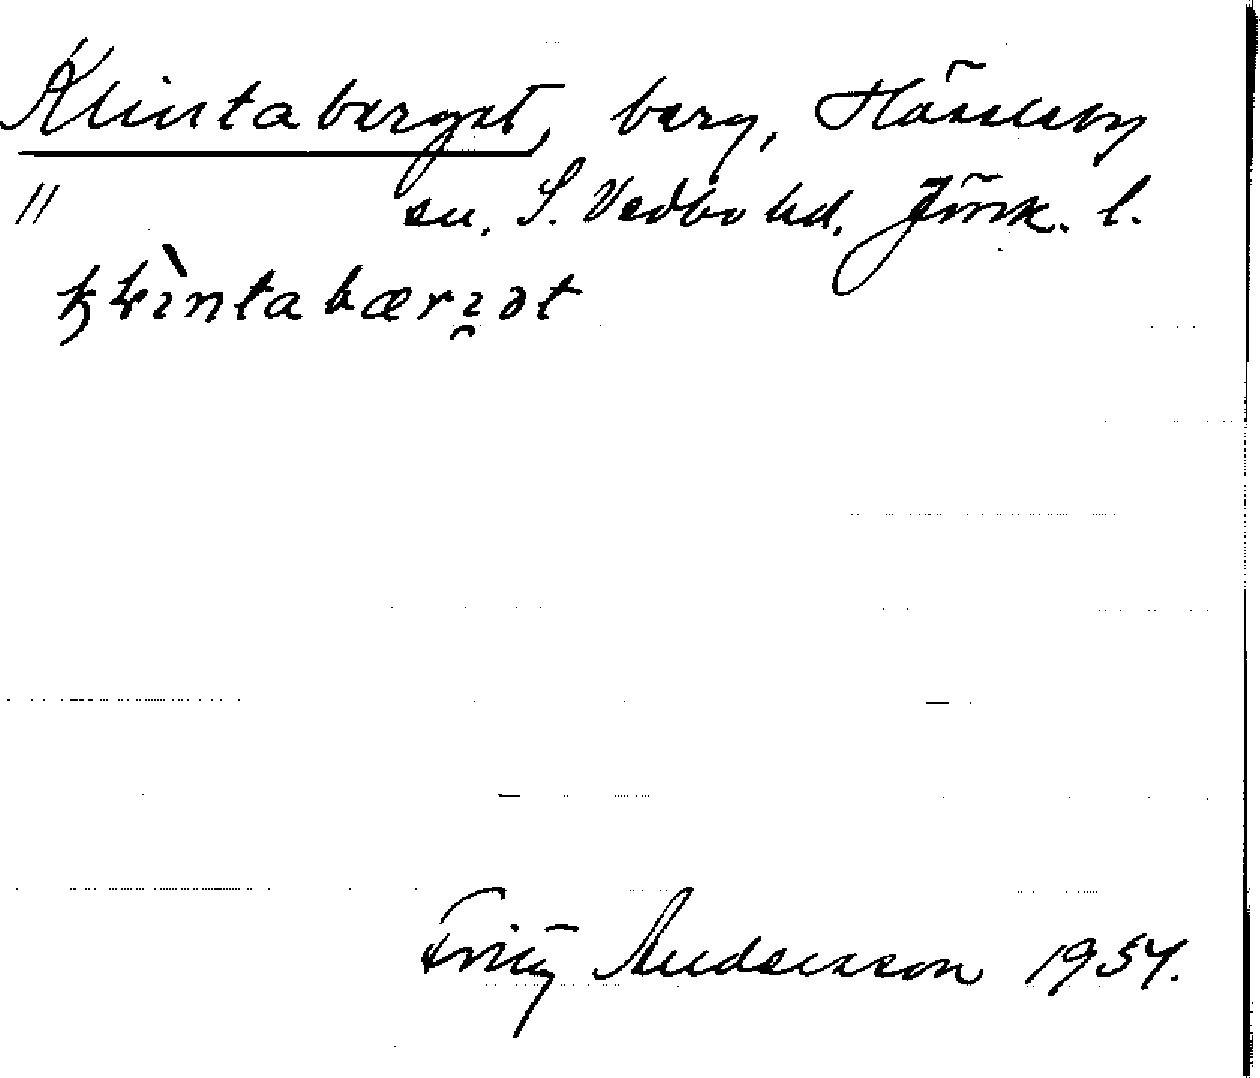 Klintaberget, berg, Hässleby
" sn, S. Vedbo hd, Jönk. l.
Fritz Andersson 1954.